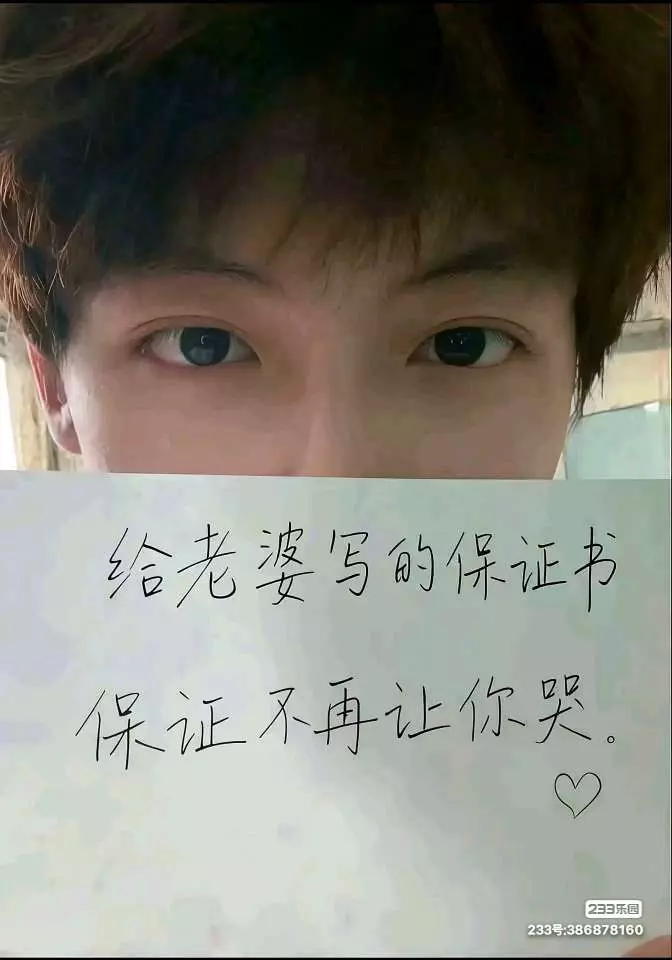 给老婆写的保证书
保证不再让你哭。
233乐园
233号:386878160